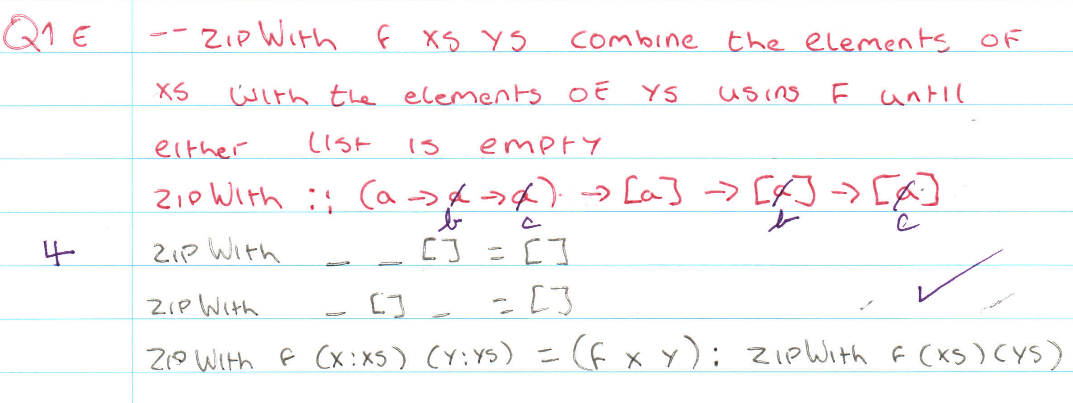 Q1 E -- zipWith f xs ys combine the elements of
xs with the elements of ys using f until
either list is empty
zipWith :: (a -> a -> a) -> [a] -> [a] -> [a]
b c b c
4 zipWith _ _ [] = []
zipWith _ [] _ = []
zipWith f (x:xs) (y:ys) = (f x y) : zipWith f (xs) (ys)